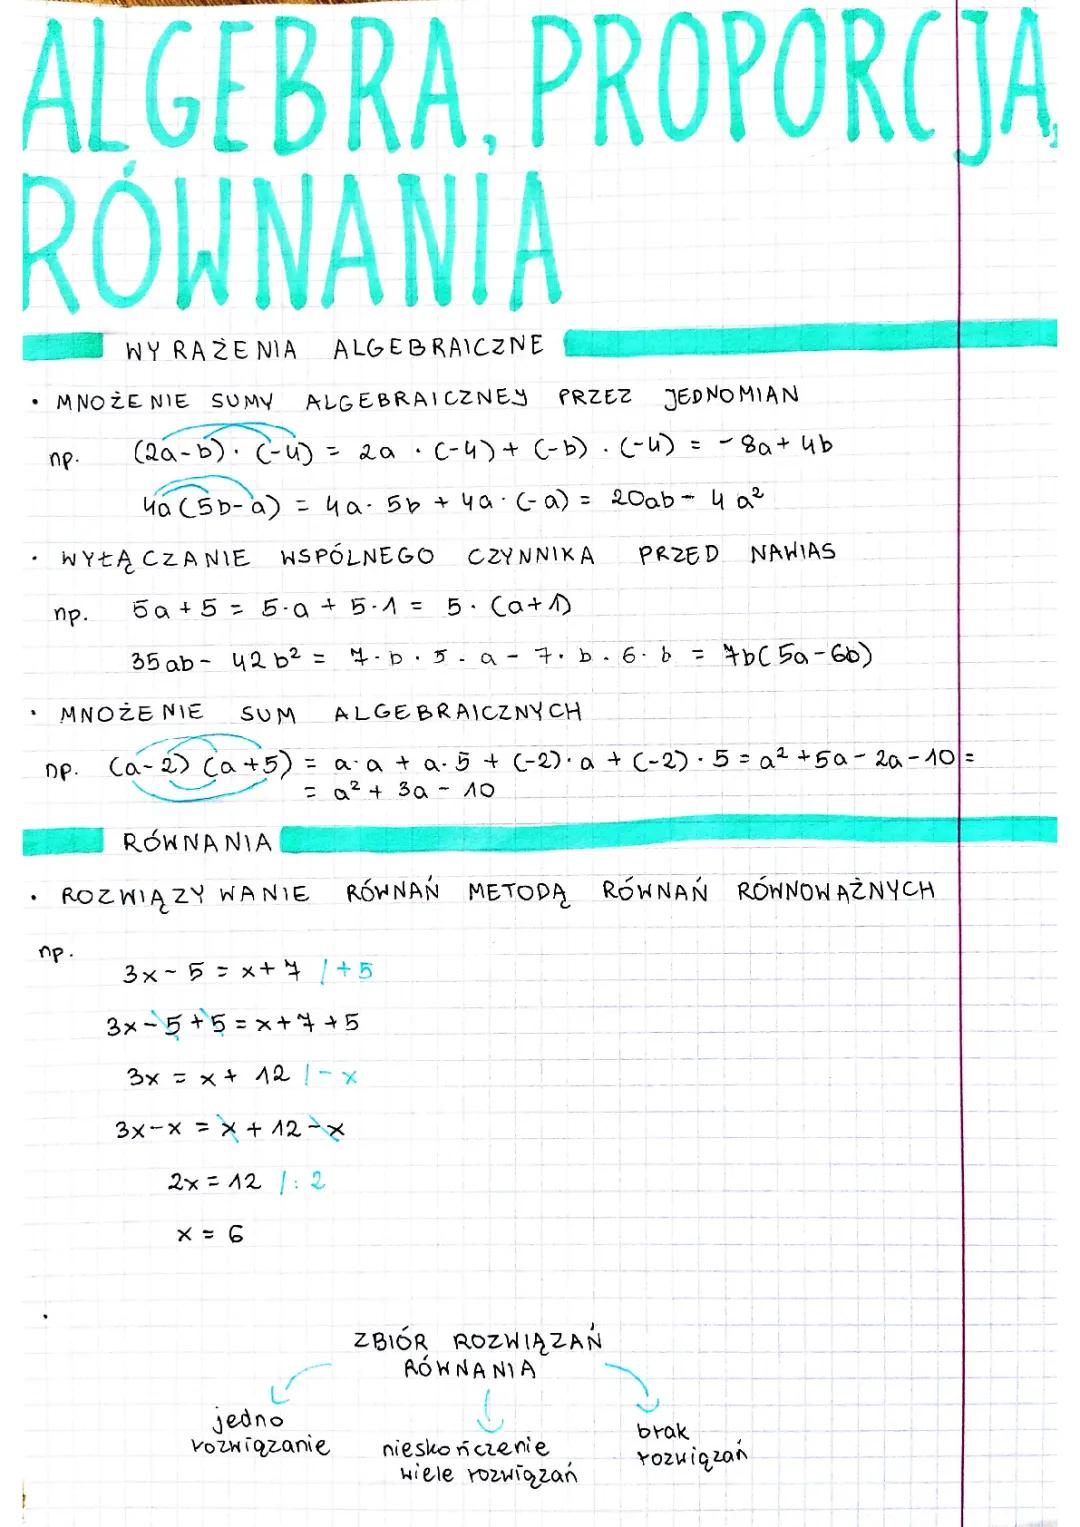 ALGEBRA, PROPORCJA,
RÓWNANIA
WYRAŻENIA ALGEBRAICZNE
• MNOŻENIE SUMY ALGEBRAICZNEJ PRZEZ JEDNOMIAN
np. (2a-b)·(-4) = 2a · (-4) + (-b) · (-4) = -8a + 4b
4a(5b-a) = 4a · 5b + 4a · (-a) = 20ab - 4a²
• WYŁĄCZANIE WSPÓLNEGO CZYNNIKA PRZED NAWIAS
np. 5a + 5 = 5·a + 5·1 = 5·(a+1)
35ab - 42b² = 7·b·5·a - 7·b·6·b = 7b(5a-6b)
• MNOŻENIE SUM ALGEBRAICZNYCH
np. (a-2)(a+5) = a·a + a·5 + (-2)·a + (-2)·5 = a² + 5a - 2a - 10 =
= a² + 3a - 10
RÓWNANIA
• ROZWIĄZYWANIE RÓWNAŃ METODĄ RÓWNAŃ RÓWNOWAŻNYCH
np.
3x - 5 = x + 7 /+5
3x - 5 + 5 = x + 7 + 5
3x = x + 12 /-x
3x - x = x + 12 - x
2x = 12 /:2
x = 6
•
ZBIÓR ROZWIĄZAŃ
RÓWNANIA
jedno
rozwiązanie
nieskończenie
wiele rozwiązań
brak
rozwiązań